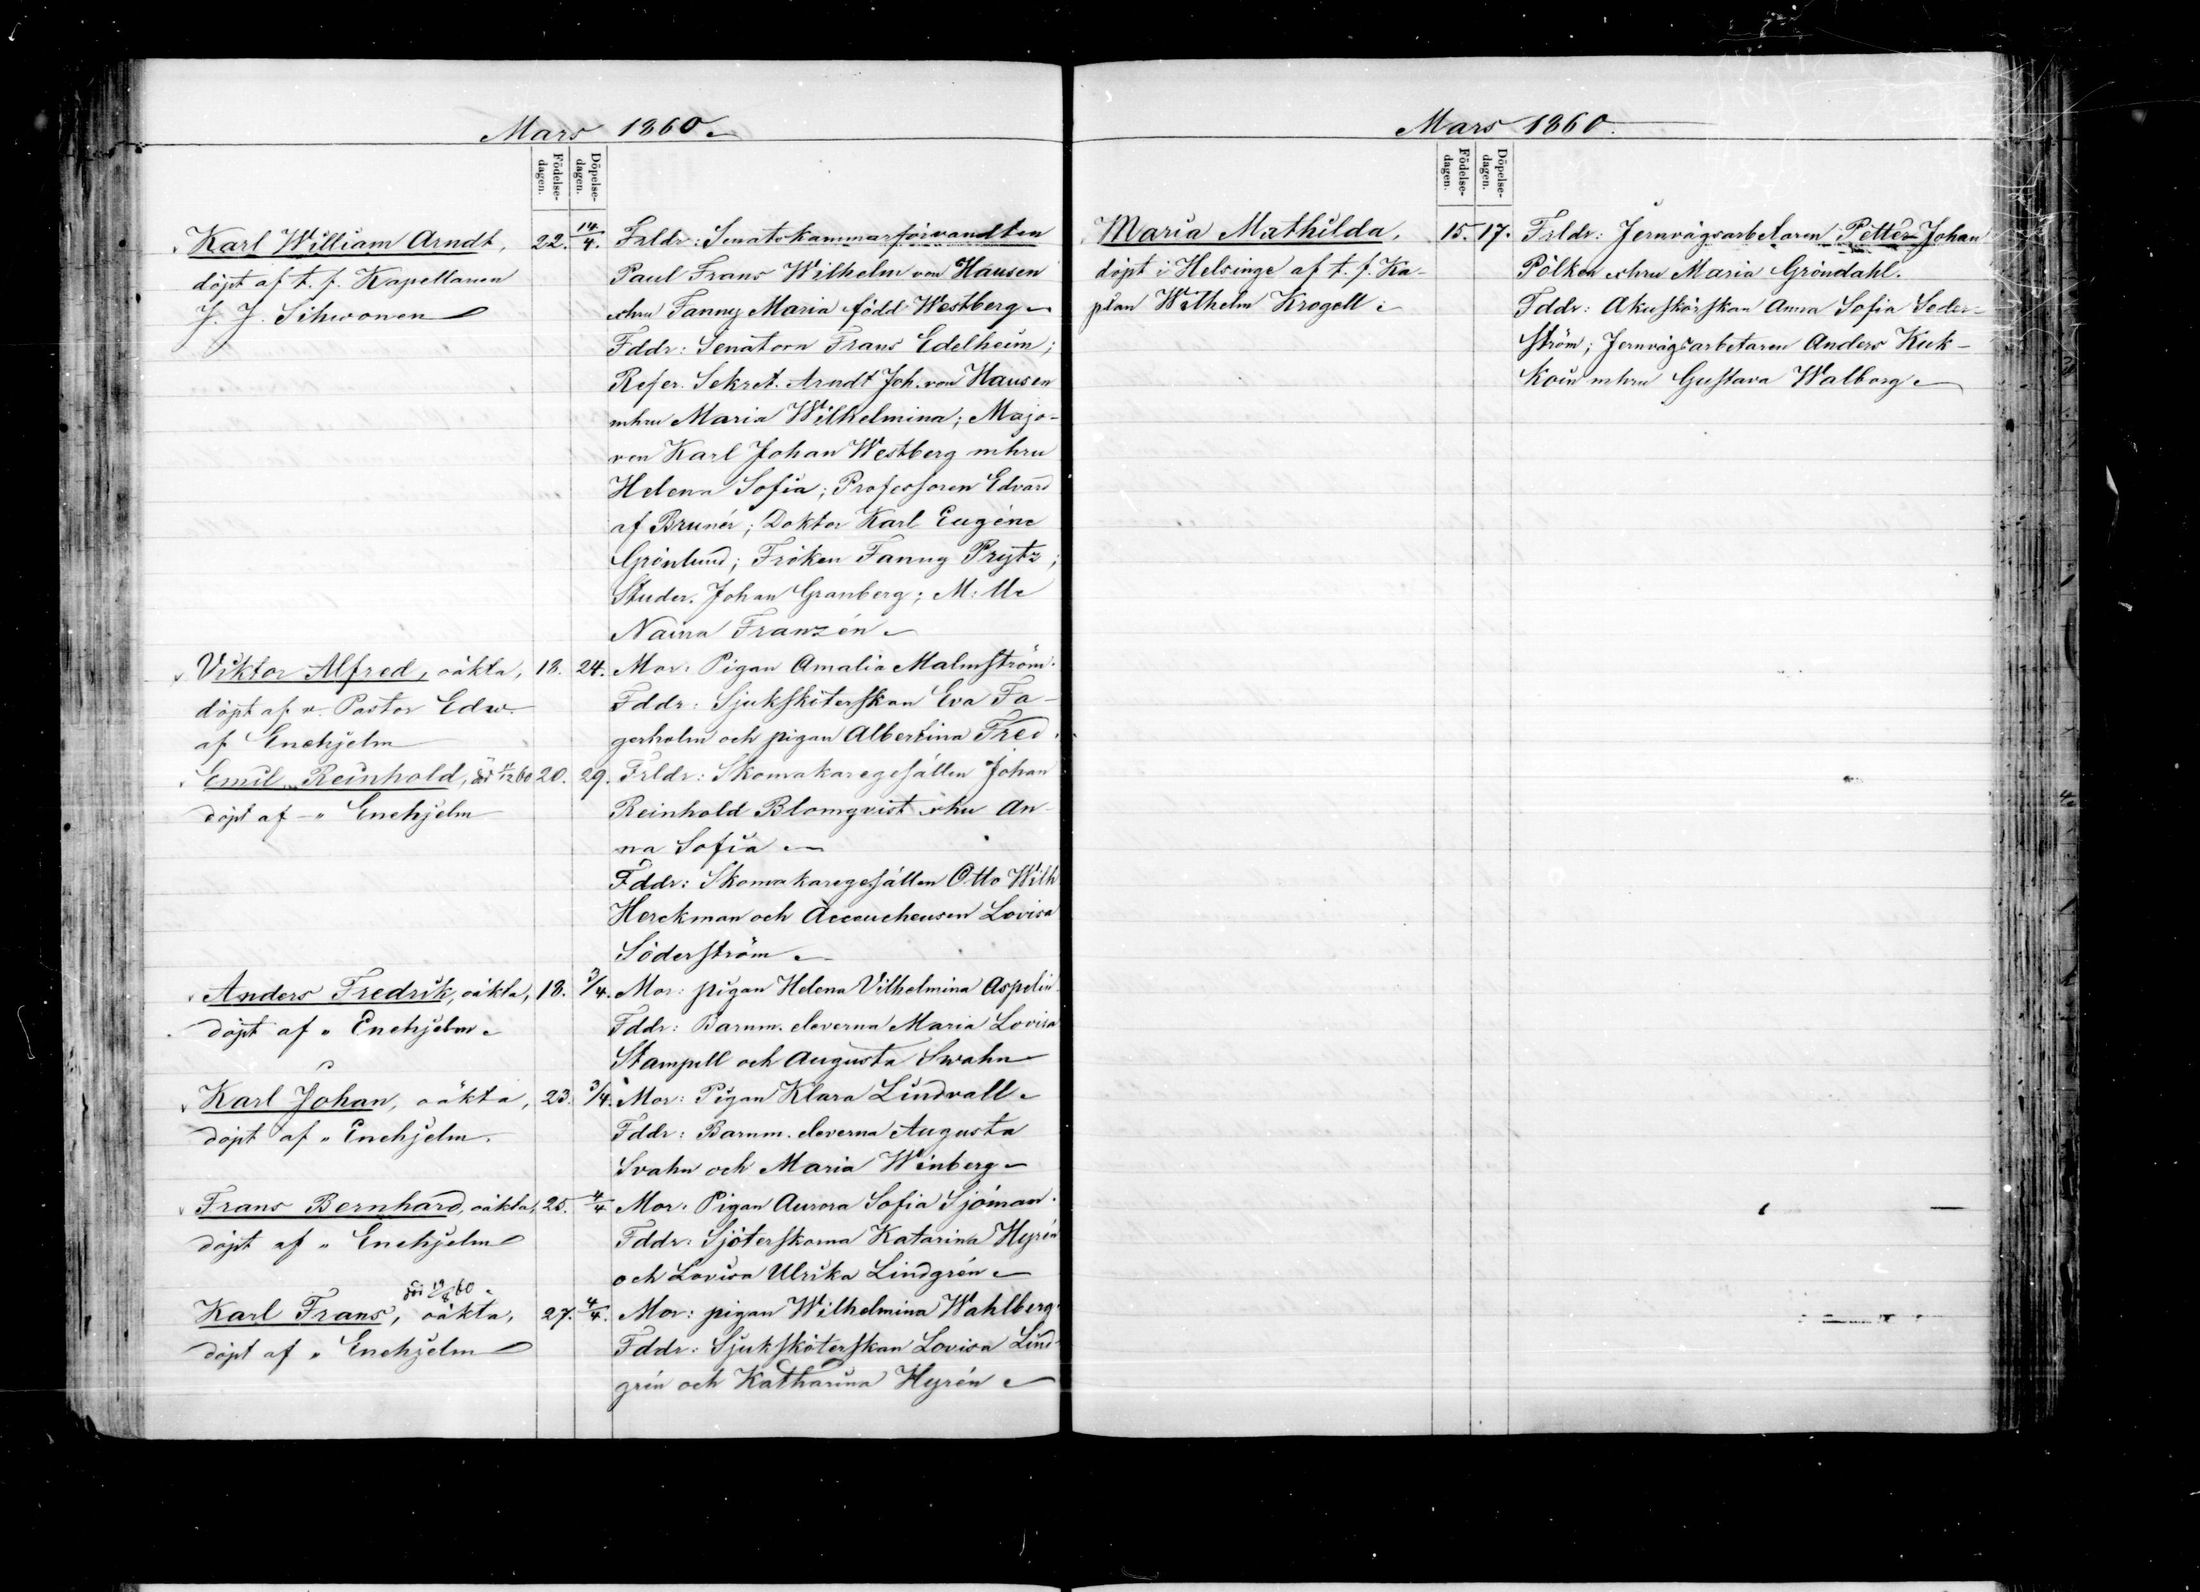 Mars 1860.
Födelse-
dagen.
Döpelse-
dagen.
Karl William Arndt,
döpt af t. f. Kapellanen
J. J. Sihvonen
22. 14/4.
Frldr: Senatskammarförvandten
Paul Frans Wilhelm von Hausen
o hru Fanny Maria född Westberg
Fddr: Senatorn Frans Edelheim;
Refer. Sekret. Arndt Joh. von Hausen
mhru Maria Wilhelmina; Majo-
ren Karl Johan Westberg mhru
Helena Sofia; Professoren Edvard
af Brunér; Doktor Karl Eugéne
Grönlund; Fröken Fanny Prytz;
Studer. Johan Granberg; M:lle
Naima Franzén
Viktor Alfred, oäkta,
döpt af v. Pastor Edw.
af Enehjelm
18. 24.
Mor: Pigan Amalia Malmström.
Fddr: Sjukskiterskan Eva Fa-
gerholm och pigan Albertina Fred.
Emil Reinhold, 60
döpt af " Enehjelm
20. 29.
Frldr: Skomakaregesällen Johan
Reinhold Blomqvist o hu An-
na Sofia
Fddr: Skomakaregesällen Otto Wilh
Herckman och Accoucheusen Lovisa
Söderström
Anders Fredrik, oäkta,
döpt af " Enehjelm
18. 3/4.
Mor: pigan Helena Vilhelmina Aspelin
Fddr: Barnm. eleverna Maria Lovisa
Stampell och Augusta Swahn
Karl Johan, oäkta,
döpt af " Enehjelm.
23. 3/4.
Mor: Pigan Klara Lindvall
Fddr: Barnm. eleverna Augusta
Svahn och Maria Winberg
Frans Bernhard, oäkta,
döpt af " Enehjelm
25. 4/4
Mor: Pigan Aurora Sofia Sjöman.
Fddr: Sjöterskorna Katarina Hyrén
och Lovisa Ulrika Lindgrén
döi 19/8 60
Karl Frans, oäkta,
döpt af " Enehjelm
27. 4/4.
Mor: pigan Wilhelmina Wahlberg.
Fddr: Sjuksköterskan Lovisa Lind-
grén och Katharina Hyrén
Mars 1860.
Födelse-
dagen.
Döpelse-
dagen.
Maria Mathilda,
döpt i Helsinge af t. f. Ka-
plan Wilhelm Krogell
15. 17.
Frldr: Jernvägsarbetaren Petter Johan
Pölken o hru Maria Gröndahl.
Fddr: Akuskörskan Anna Sofia Söder-
ström; Jernvägsarbetaren Anders Kuk-
koin mhru Gustava Walborg